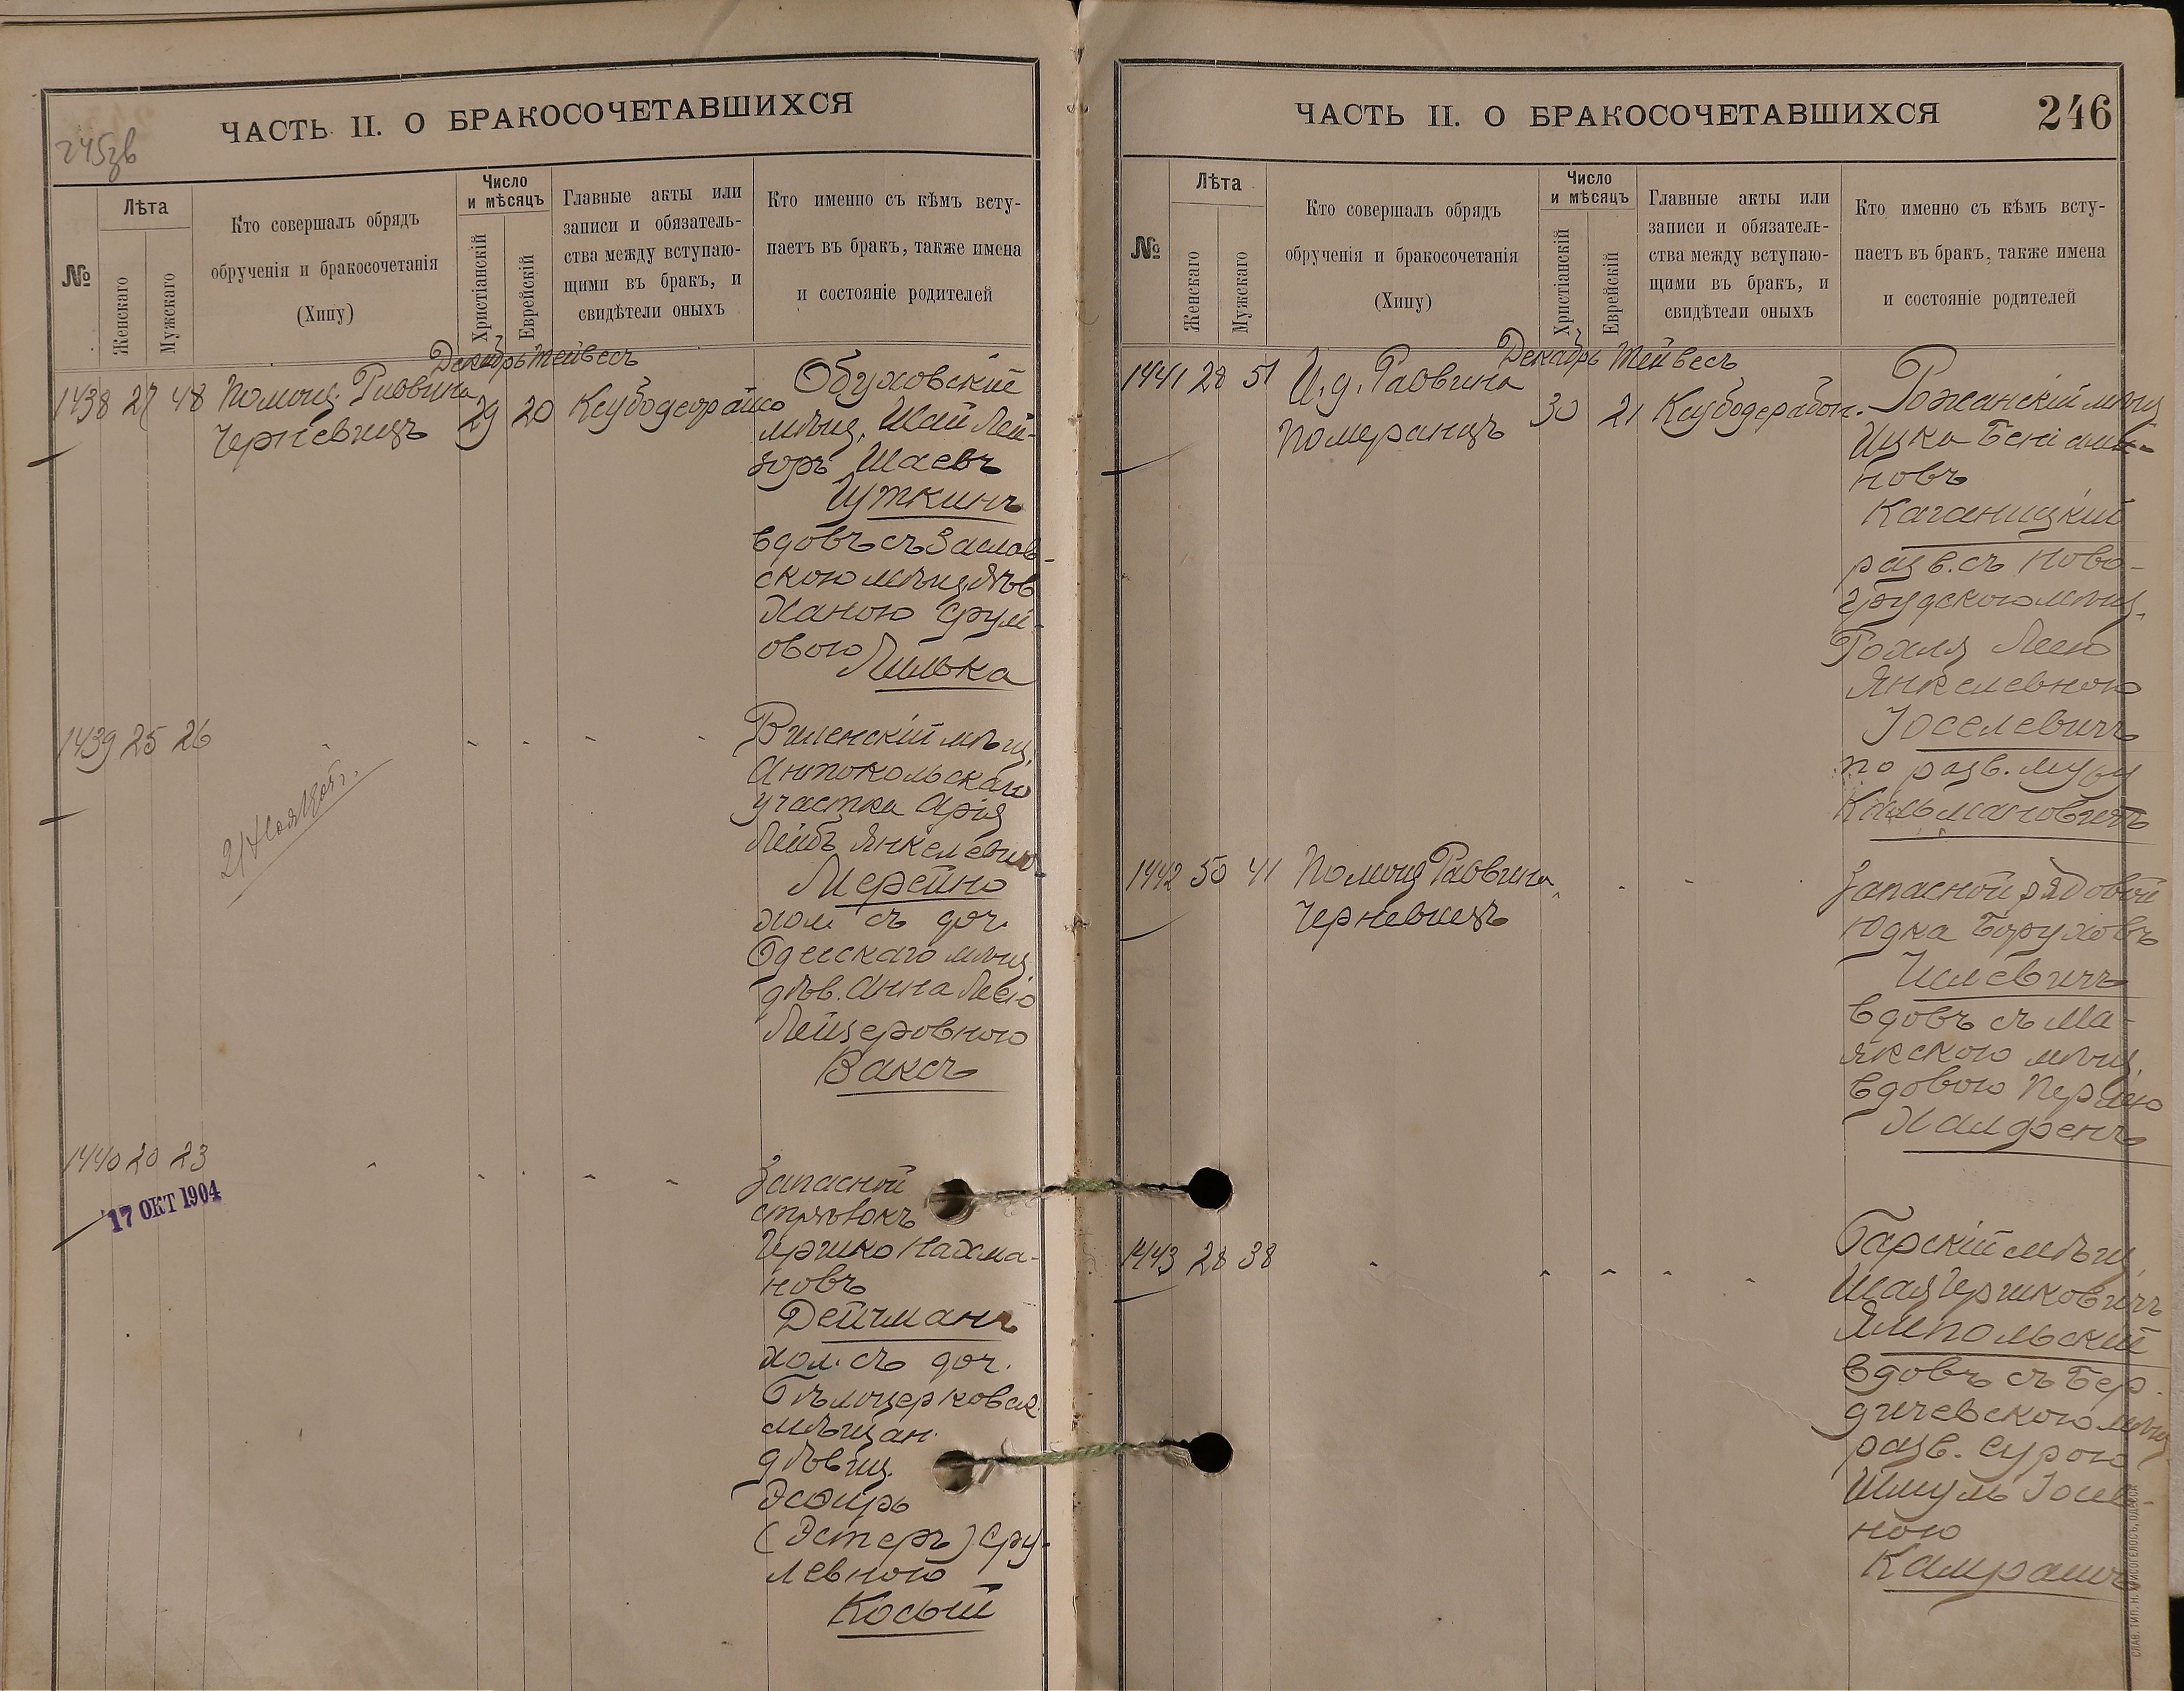 ЧАСТЬ II. О БРАКОСОЧЕТАВШИХСЯ
№
Лѣта
Женскаго
Мужскаго
Кто совершалъ обрядъ
обрученія и бракосочетанія
(Хипу)
Число
и мѣсяцъ
Христіанскій
Еврейскій
Главные акты или
записи и обязатель-
ства между вступаю-
щими въ бракъ, и
свидѣтели оныхъ
Кто именно съ кѣмъ всту-
паетъ въ бракъ, также имена
и состояніе родителей
Декабрь Тейвесъ
1438 27 48 Помощ. Раввина
Черневицъ
29 20
Обуховскій
мѣщ. Шай Лей-
зоръ Шаевъ
Гуткинъ
вдовъ съ Заслав-
скою мѣщ. дѣв
Ханою Срул-
овою
Пилька
1439 25 26
Виленскій мѣщ.
Антокольскаго
участка Арія
Лейбъ Янкелевъ
Мерейно
хол съ доч.
Одесскаго мѣщ.
дѣв. Анна Леею
Лейзеровною
Ваксъ
1440 20 23
17 ОКТ 1904
Запасной
стрѣлокъ
Гершко Нахма-
новъ
Дейчманъ
хол. съ доч.
Бѣлоцерковск.
мѣщан.
дѣвиц.
Эсѳирь
(Эстеръ) Сру-
левною
Косый
ЧАСТЬ II. О БРАКОСОЧЕТАВШИХСЯ
246
№
Лѣта
Женскаго
Мужскаго
Кто совершалъ обрядъ
обрученія и бракосочетанія
(Хипу)
Число
и мѣсяцъ
Христіанскій
Еврейскій
Главные акты или
записи и обязатель-
ства между вступаю-
щими въ бракъ, и
свидѣтели оныхъ
Кто именно съ кѣмъ всту-
паетъ въ бракъ, также имена
и состояніе родителей
Декабрь Тейвесъ
1441 28 51 И. д. Раввина
Померанцъ
30 21
Рожанскій мѣщ
Ицко Беніами-
новъ
Каганицкій
разв. съ Ново-
грудскою мѣщ.
Рохля Леею
Янкелевною
Іоселевичъ
по разв. мужу
Кальмановичъ
1442 50 41 Помощ Раввина
Черневицъ
Запасной рядовой
Юдка Боруховъ
вдовъ съ Ма-
якскою мѣщ.
вдовою Перлею
Халфенъ
1443 28 38
Барскій мѣщ.
Шая Гершковичъ
Ямпольскій
вдовъ съ Бер-
дичевскою мѣщ
разв. Сурою
Шмуль Іосев-
ною
СЛАВ. ТИП. Н. ХРИСОГЕЛОСЪ, ОДЕССА